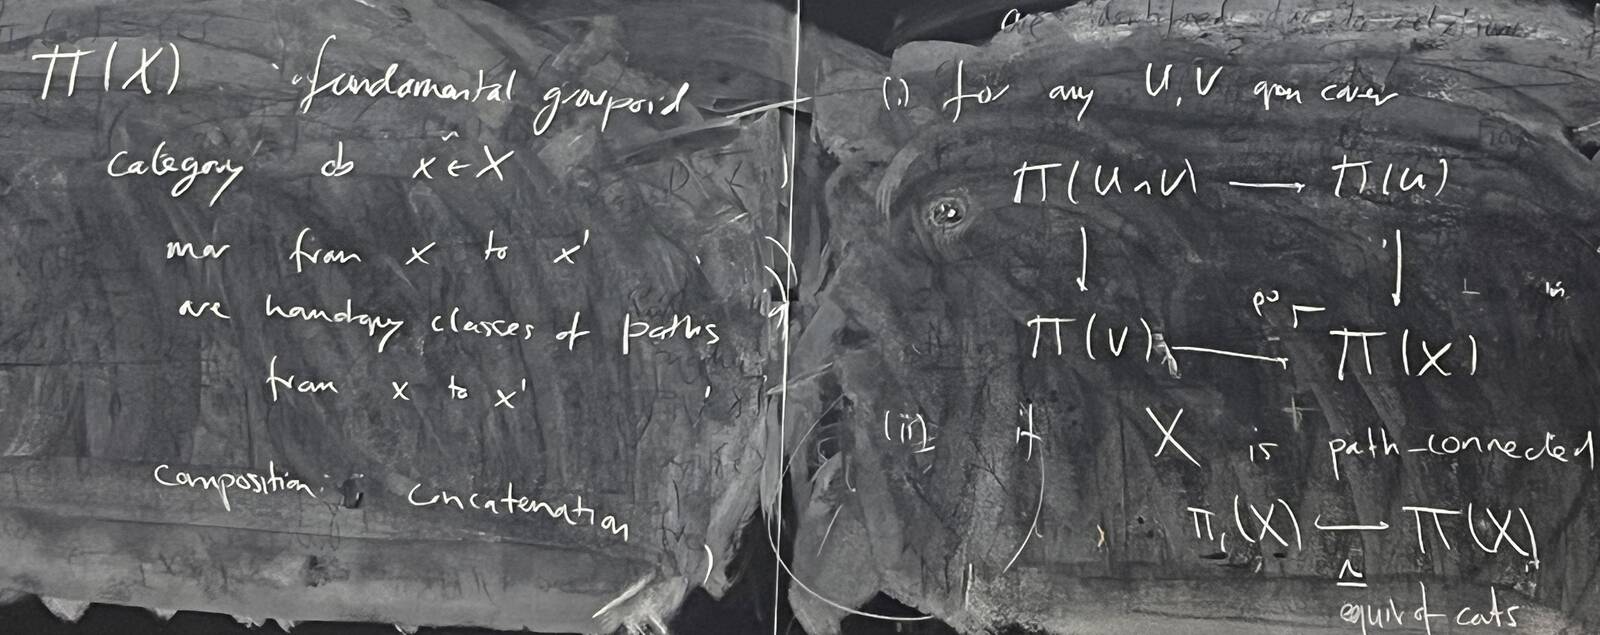 Π(X) fundamental groupoid
Category ob x ∈ X
mor from x to x'
are homotopy classes of paths
from x to x'
Composition: concatenation
(i) for any U, V open cover
Π(U∩V) → Π(U)
↓ ↓
Π(V) → Π(X)
po
(ii) if X is path-connected
π₁(X) ↪ Π(X)
≃
equiv of cats